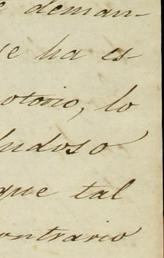 deman-
se ha es-
otorio, lo
ludoso
que tal
ontrario